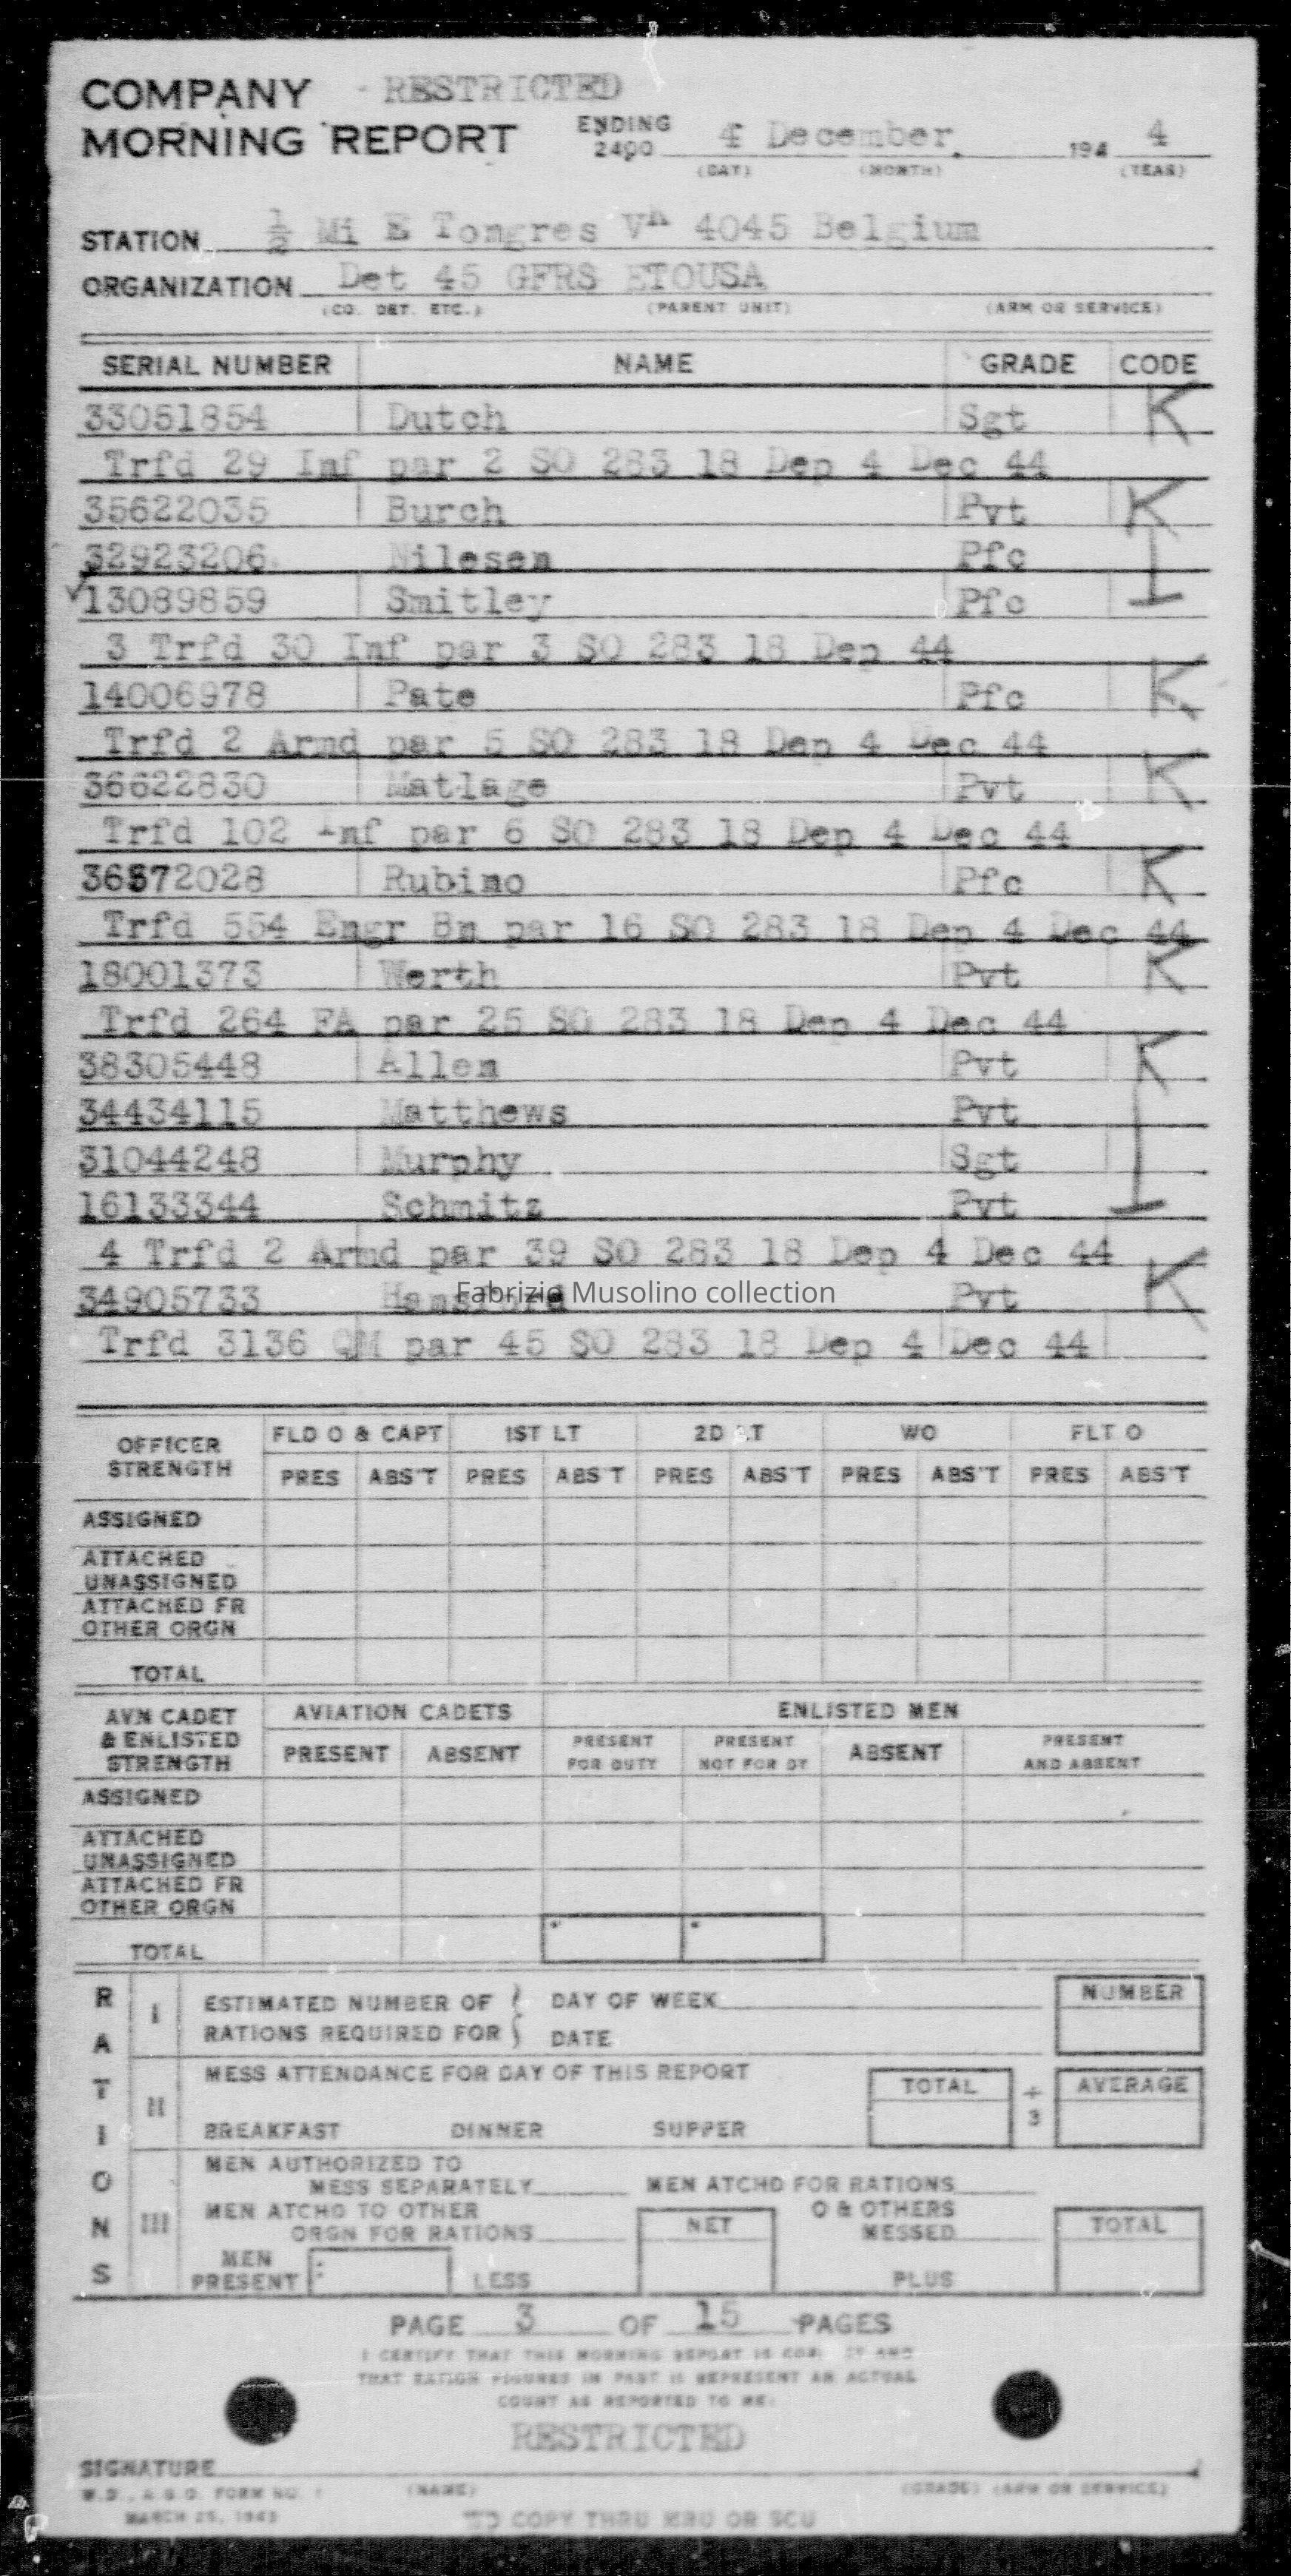 COMPANY RESTRICTED
MORNING REPORT ENDING 2400 4 December 194 4
(DAY) (MONTH) (YEAR)
STATION ½ Mi E Tongres VK 4045 Belgium
ORGANIZATION Det 45 GFRS ETOUSA
(CO. DET. ETC.) (PARENT UNIT) (ARM OR SERVICE)
SERIAL NUMBER NAME GRADE CODE
33051854 Dutch Sgt K
Trfd 29 Inf par 2 SO 283 18 Dep 4 Dec 44
35622035 Burch Pvt K
32923206 Nilesen Pfc
✓13089859 Smitley Pfc
3 Trfd 30 Inf par 3 SO 283 18 Dep 44
14006978 Pate Pfc K
Trfd 2 Armd par 5 SO 283 18 Dep 4 Dec 44
36622830 Matlage Pvt K
Trfd 102 Inf par 6 SO 283 18 Dep 4 Dec 44
36572028 Rubino Pfc K
Trfd 554 Engr Bn par 16 SO 283 18 Dep 4 Dec 44
18001373 Werth Pvt K
Trfd 264 FA par 25 SO 283 18 Dep 4 Dec 44
38305448 Allen Pvt K
34434115 Matthews Pvt
31044248 Murphy Sgt
16133344 Schmitz Pvt
4 Trfd 2 Armd par 39 SO 283 18 Dep 4 Dec 44
Fabrizio Musolino collection
34905733 Pvt K
Trfd 3136 QM par 45 SO 283 18 Dep 4 Dec 44
OFFICER STRENGTH FLD O & CAPT 1ST LT 2D LT WO FLT O
PRES ABS'T PRES ABS'T PRES ABS'T PRES ABS'T PRES ABS'T
ASSIGNED
ATTACHED
UNASSIGNED
ATTACHED FR
OTHER ORGN
TOTAL
AVN CADET & ENLISTED STRENGTH AVIATION CADETS ENLISTED MEN
PRESENT ABSENT PRESENT FOR DUTY PRESENT NOT FOR DY ABSENT PRESENT AND ABSENT
ASSIGNED
ATTACHED
UNASSIGNED
ATTACHED FR
OTHER ORGN
TOTAL
RATIONS
I ESTIMATED NUMBER OF DAY OF WEEK NUMBER
RATIONS REQUIRED FOR DATE
II MESS ATTENDANCE FOR DAY OF THIS REPORT TOTAL ÷ 3 AVERAGE
BREAKFAST DINNER SUPPER
III MEN AUTHORIZED TO
MESS SEPARATELY MEN ATCHD FOR RATIONS
MEN ATCHD TO OTHER O & OTHERS
ORGN FOR RATIONS NET MESSED TOTAL
MEN
PRESENT LESS PLUS
PAGE 3 OF 15 PAGES
I CERTIFY THAT THIS MORNING REPORT IS AND
THAT RATION FIGURES IN PART II REPRESENT AN ACTUAL
COUNT AS REPORTED TO ME:
RESTRICTED
SIGNATURE
W.D., A.G.O. FORM NO. 1 (NAME) (GRADE) (ARM OR SERVICE)
MARCH 25, 1943
TO COPY THRU MRU OR SCU